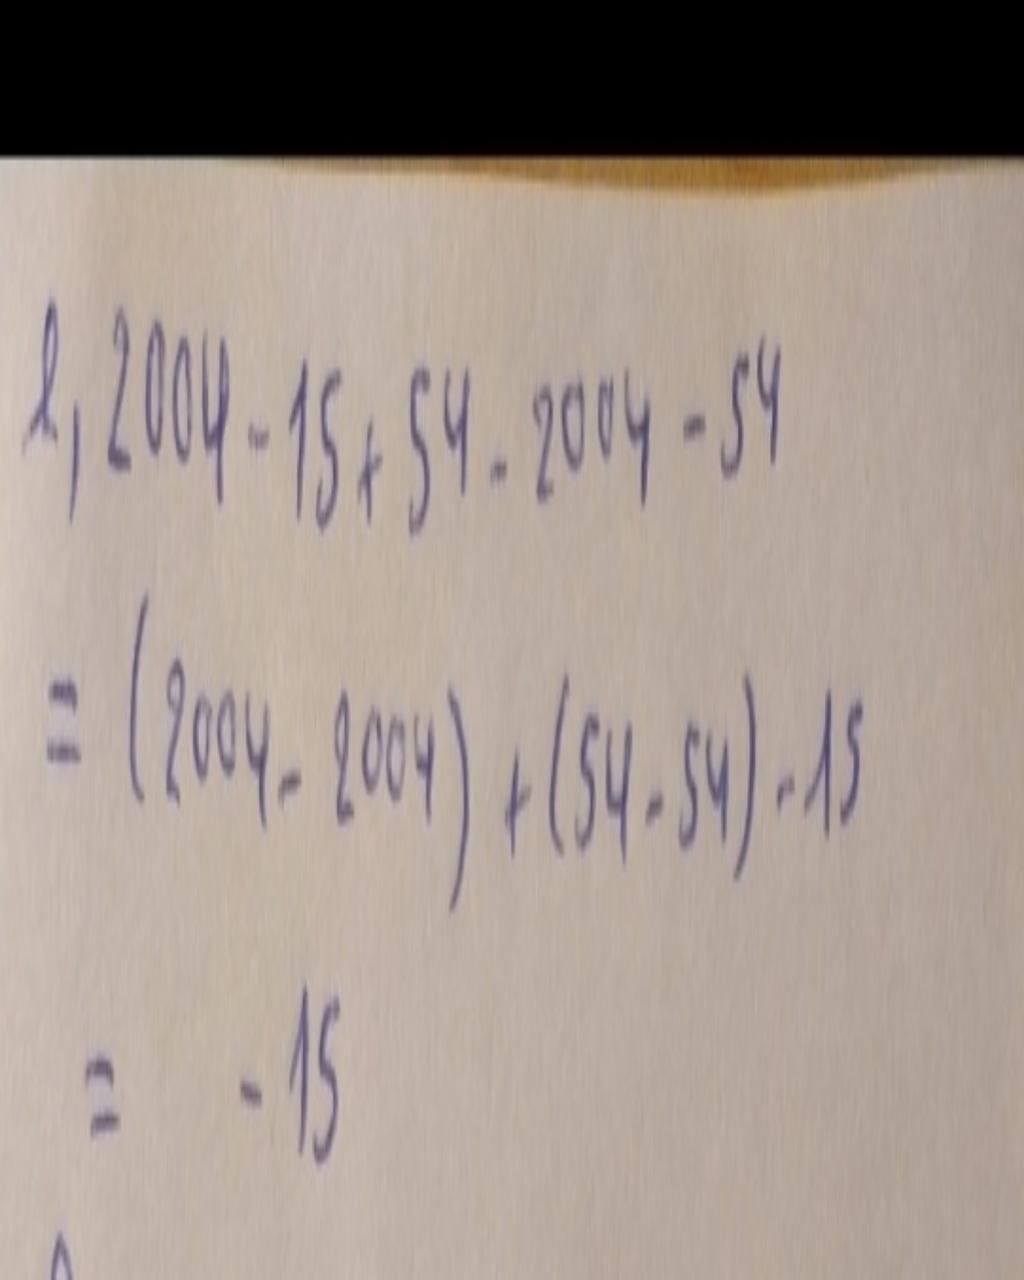 l, 2004 - 15 + 54 - 2004 - 54
= (2004 - 2004) + (54 - 54) - 15
= - 15